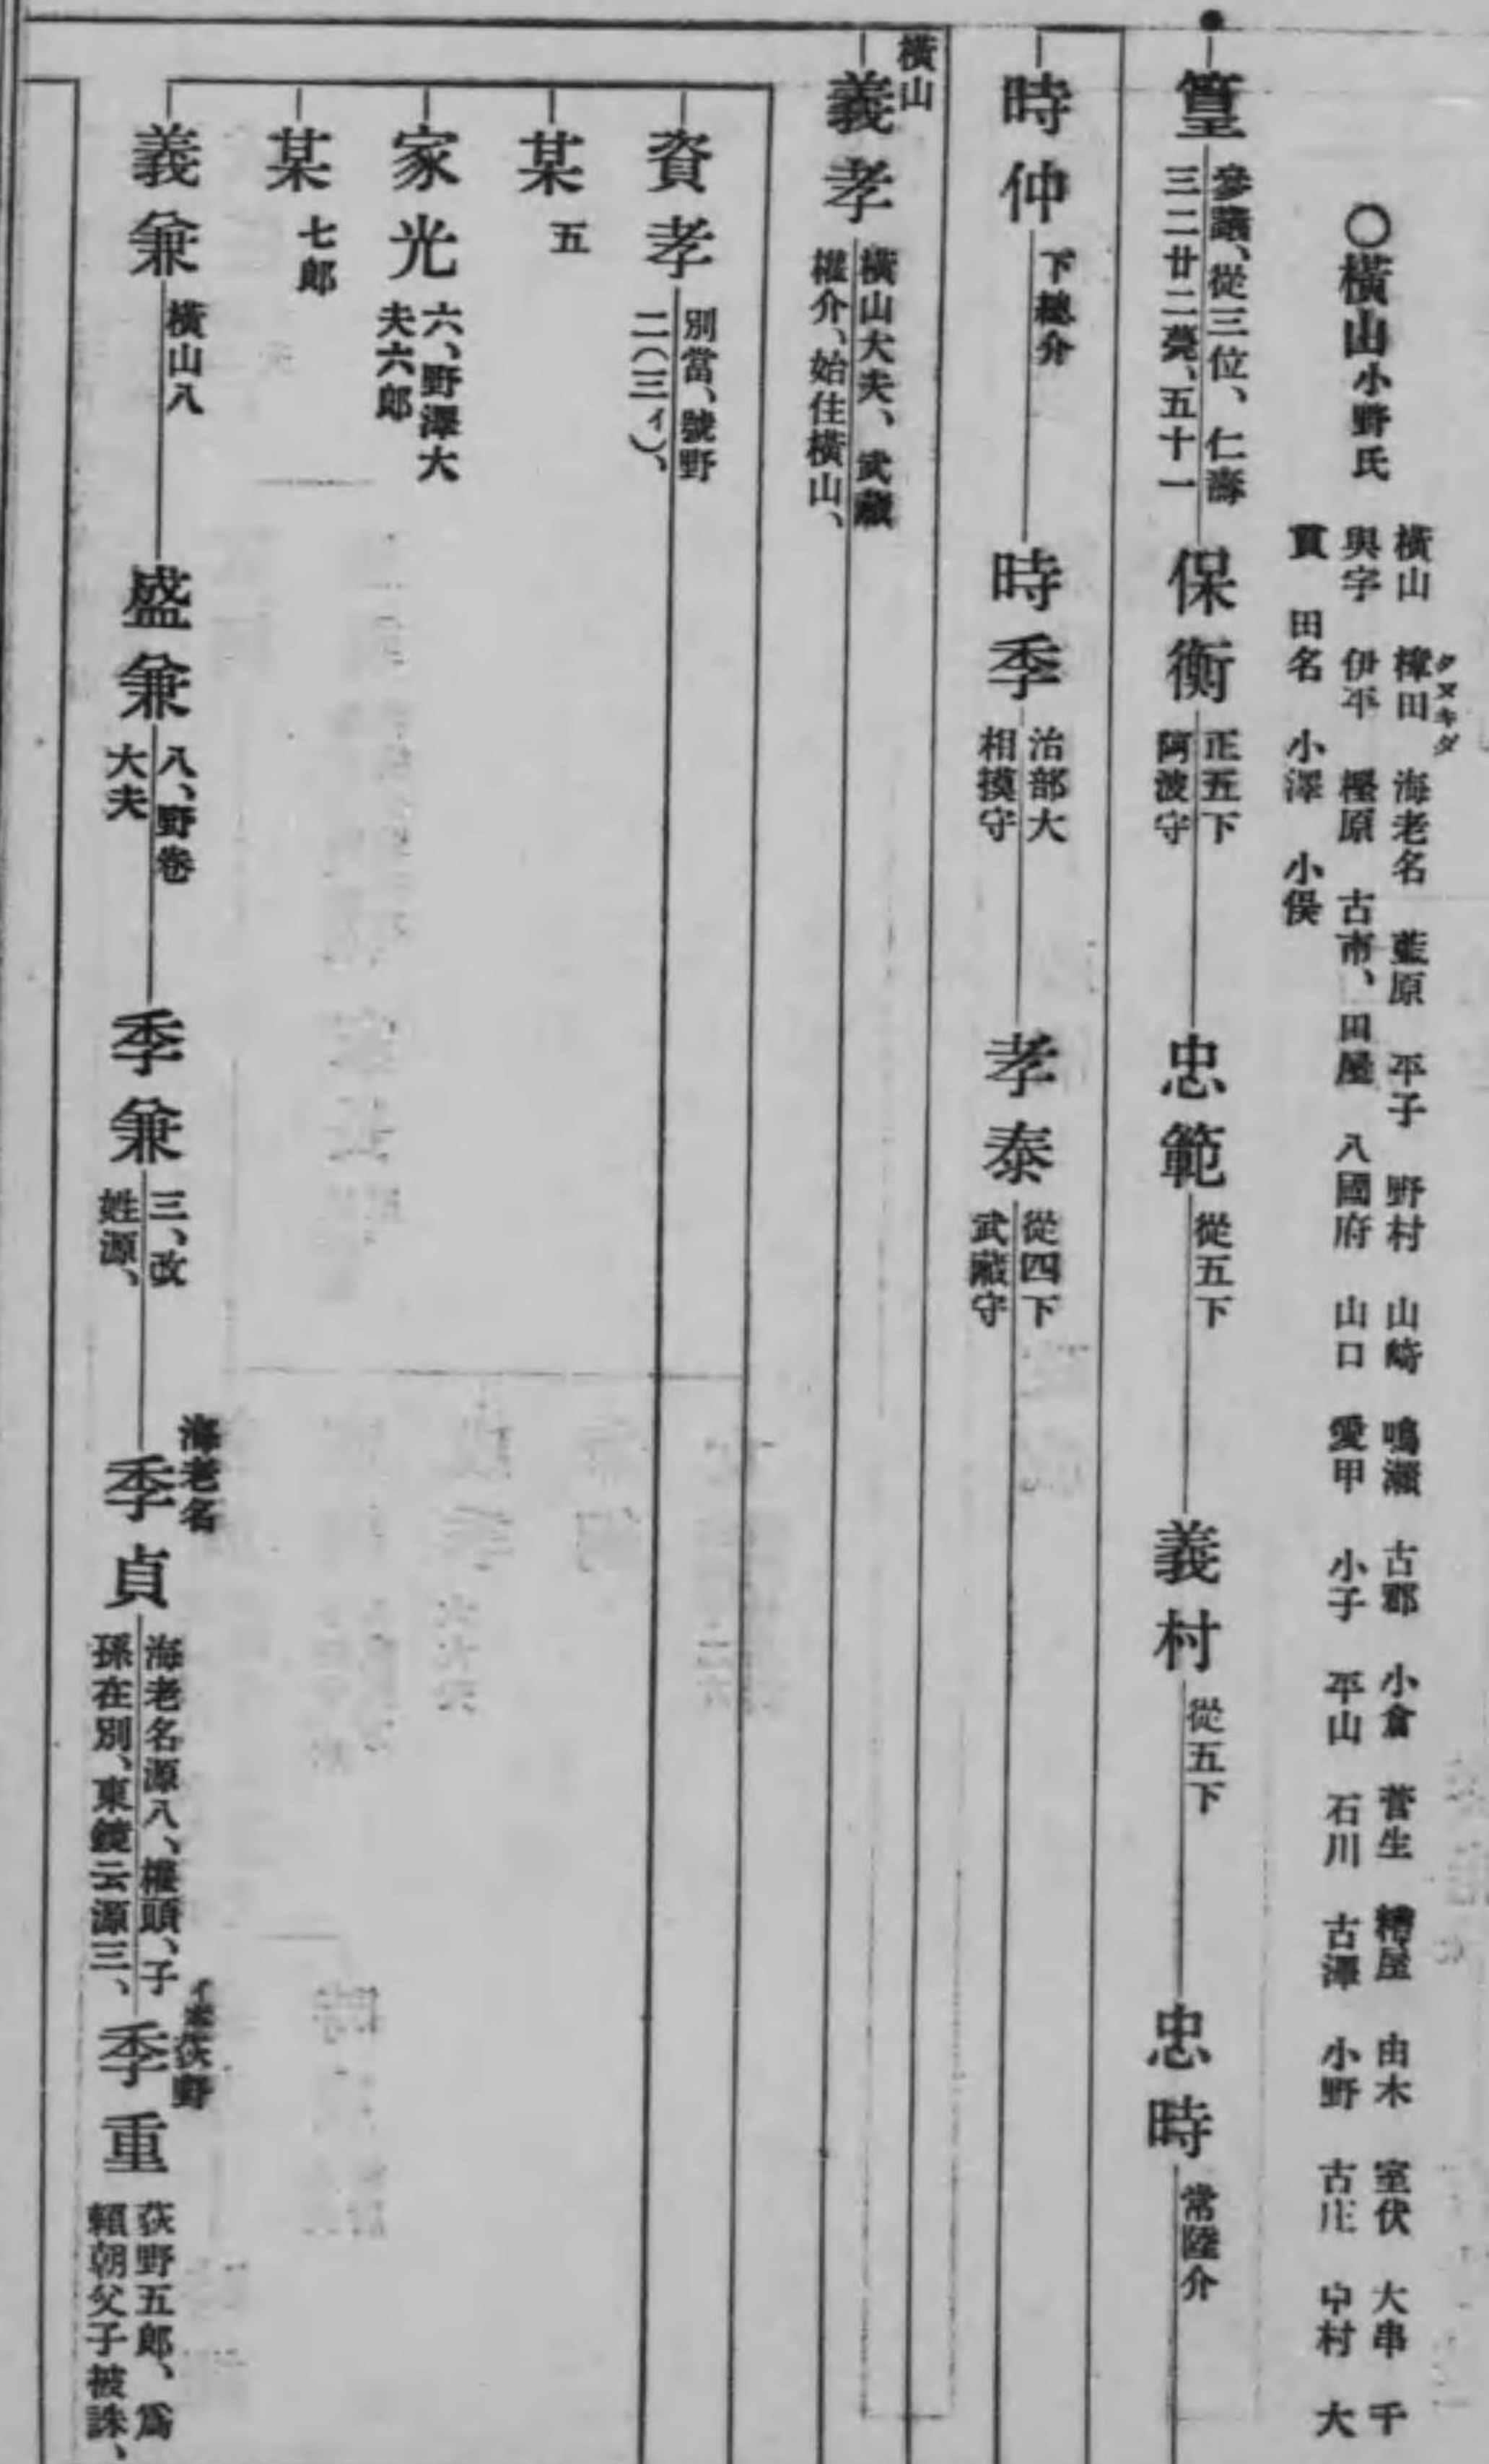 〇橫山小野氏
橫山 樟田 海老名 藍原 平子 野村 山崎 鳴瀨 古郡 小倉 菅生 糟屋 由木 室伏 大串 千
クヌキダ
與字 伊平 樫原 古市、田屋 八國府 山口 愛甲 小子 平山 石川 古澤 小野 古庄 中村 大
貫 田名 小澤 小俣
篁
參議、從三位、仁壽
三二廿二薨、五十一
保衡
正五下
阿波守
忠範
從五下
義村
從五下
忠時
常陸介
時仲
下總介
時季
治部大
相摸守
孝泰
從四下
武藏守
橫山
義孝
橫山大夫、武藏
權介、始住橫山、
資孝
別當、號野
二(三イ)、
某
五
家光
六、野澤大
夫六郎
某
七郎
義兼
橫山八
盛兼
八、野卷
大夫
季兼
三、改
姓源、
海老名
季貞
海老名源八、權頭、子
孫在別、東鏡云源三、
荻野
季重
荻野五郎、爲
賴朝父子被誅、